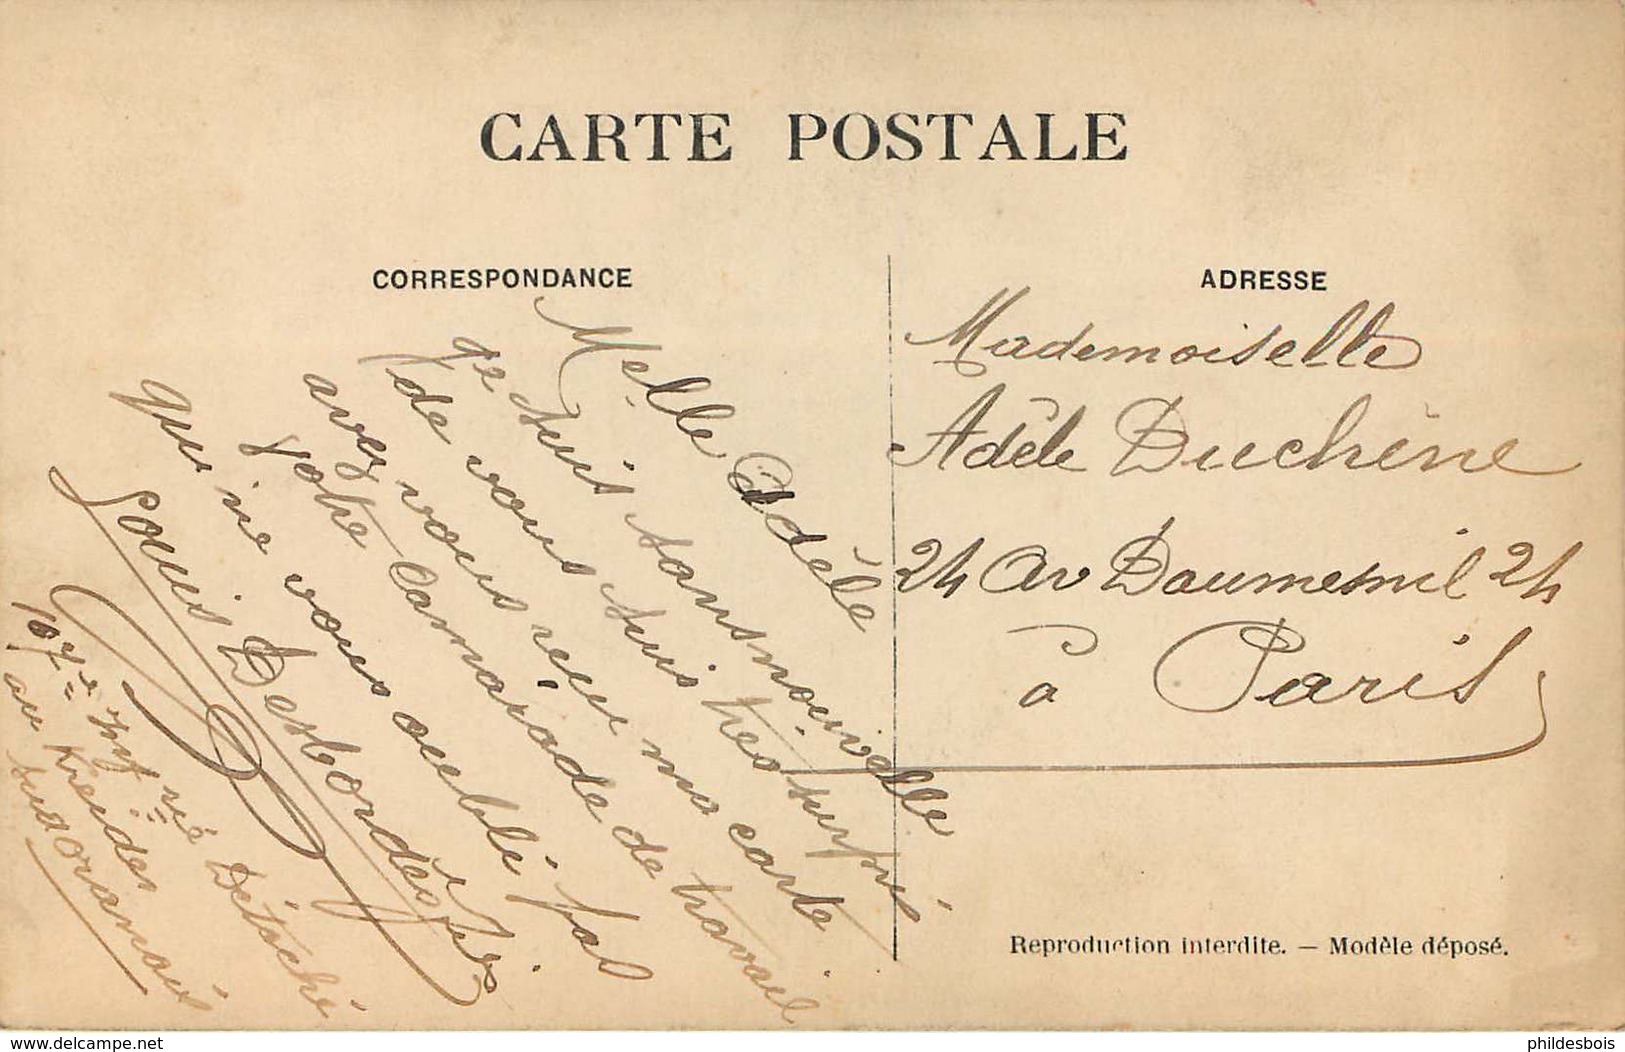 CARTE POSTALE
CORRESPONDANCE
ADRESSE
Melle Adèle
Je suis sans nouvelle
de vous suis très surpris
avez vous reçu ma carte
votre Camarade de travail
qui ne vous oublie pas
Louis Desbordes
107e
Détaché
au Kreider
sud oranais
Mademoiselle
Adèle Duchêne
24 Av Daumesnil 24
à Paris
Reproduction interdite. — Modèle déposé.
www.delcampe.net
phildesbois